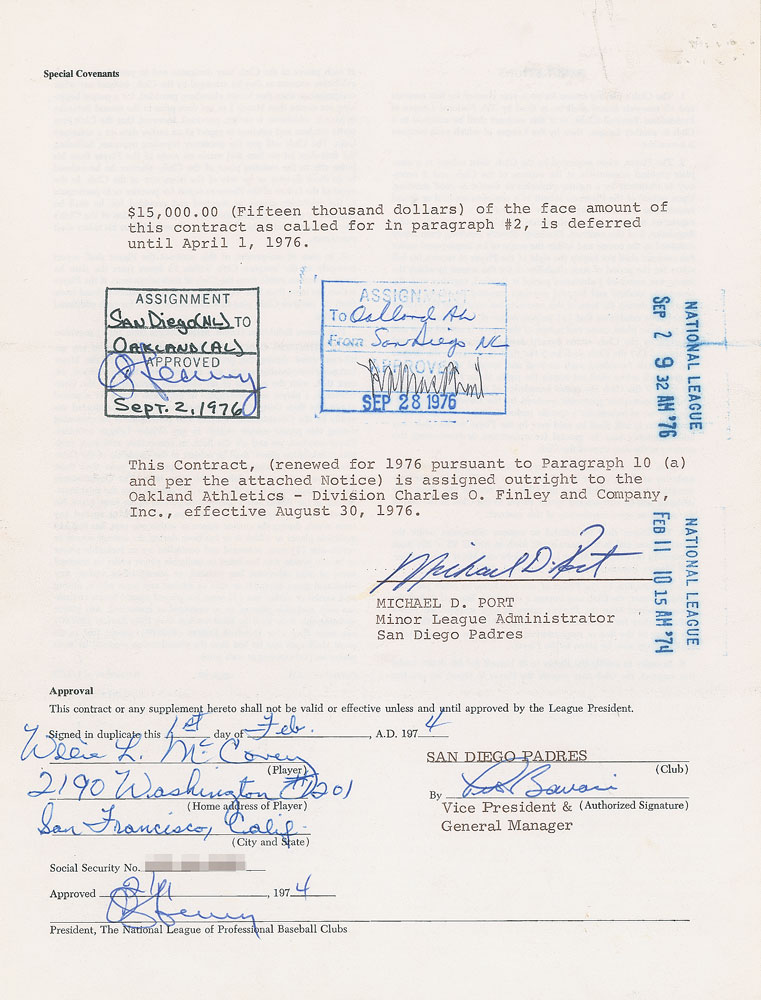 Special Covenants
$15,000.00 (Fifteen thousand dollars) of the face amount of
this contract as called for in paragraph #2, is deferred
until April 1, 1976.
ASSIGNMENT
San Diego (NL) TO
OAKLAND (AL)
APPROVED
Sept. 2, 1976
ASSIGNMENT
To Oakland AL
From San Diego NL
APPROVED
SEP 28 1976
NATIONAL LEAGUE
SEP 2 9 32 AM '76
This Contract, (renewed for 1976 pursuant to Paragraph 10 (a)
and per the attached Notice) is assigned outright to the
Oakland Athletics - Division Charles O. Finley and Company,
Inc., effective August 30, 1976.
NATIONAL LEAGUE
FEB 11 10 15 AM '74
Michael D. Port
MICHAEL D. PORT
Minor League Administrator
San Diego Padres
Approval
This contract or any supplement hereto shall not be valid or effective unless and until approved by the League President.
Signed in duplicate this 1st day of Feb. , A.D. 1974
Willie L. McCovey
(Player)
2190 Washington #1201
(Home address of Player)
San Francisco, Calif.
(City and State)
SAN DIEGO PADRES
(Club)
By
Vice President & (Authorized Signature)
General Manager
Social Security No.
Approved 2/11 , 1974
President, The National League of Professional Baseball Clubs